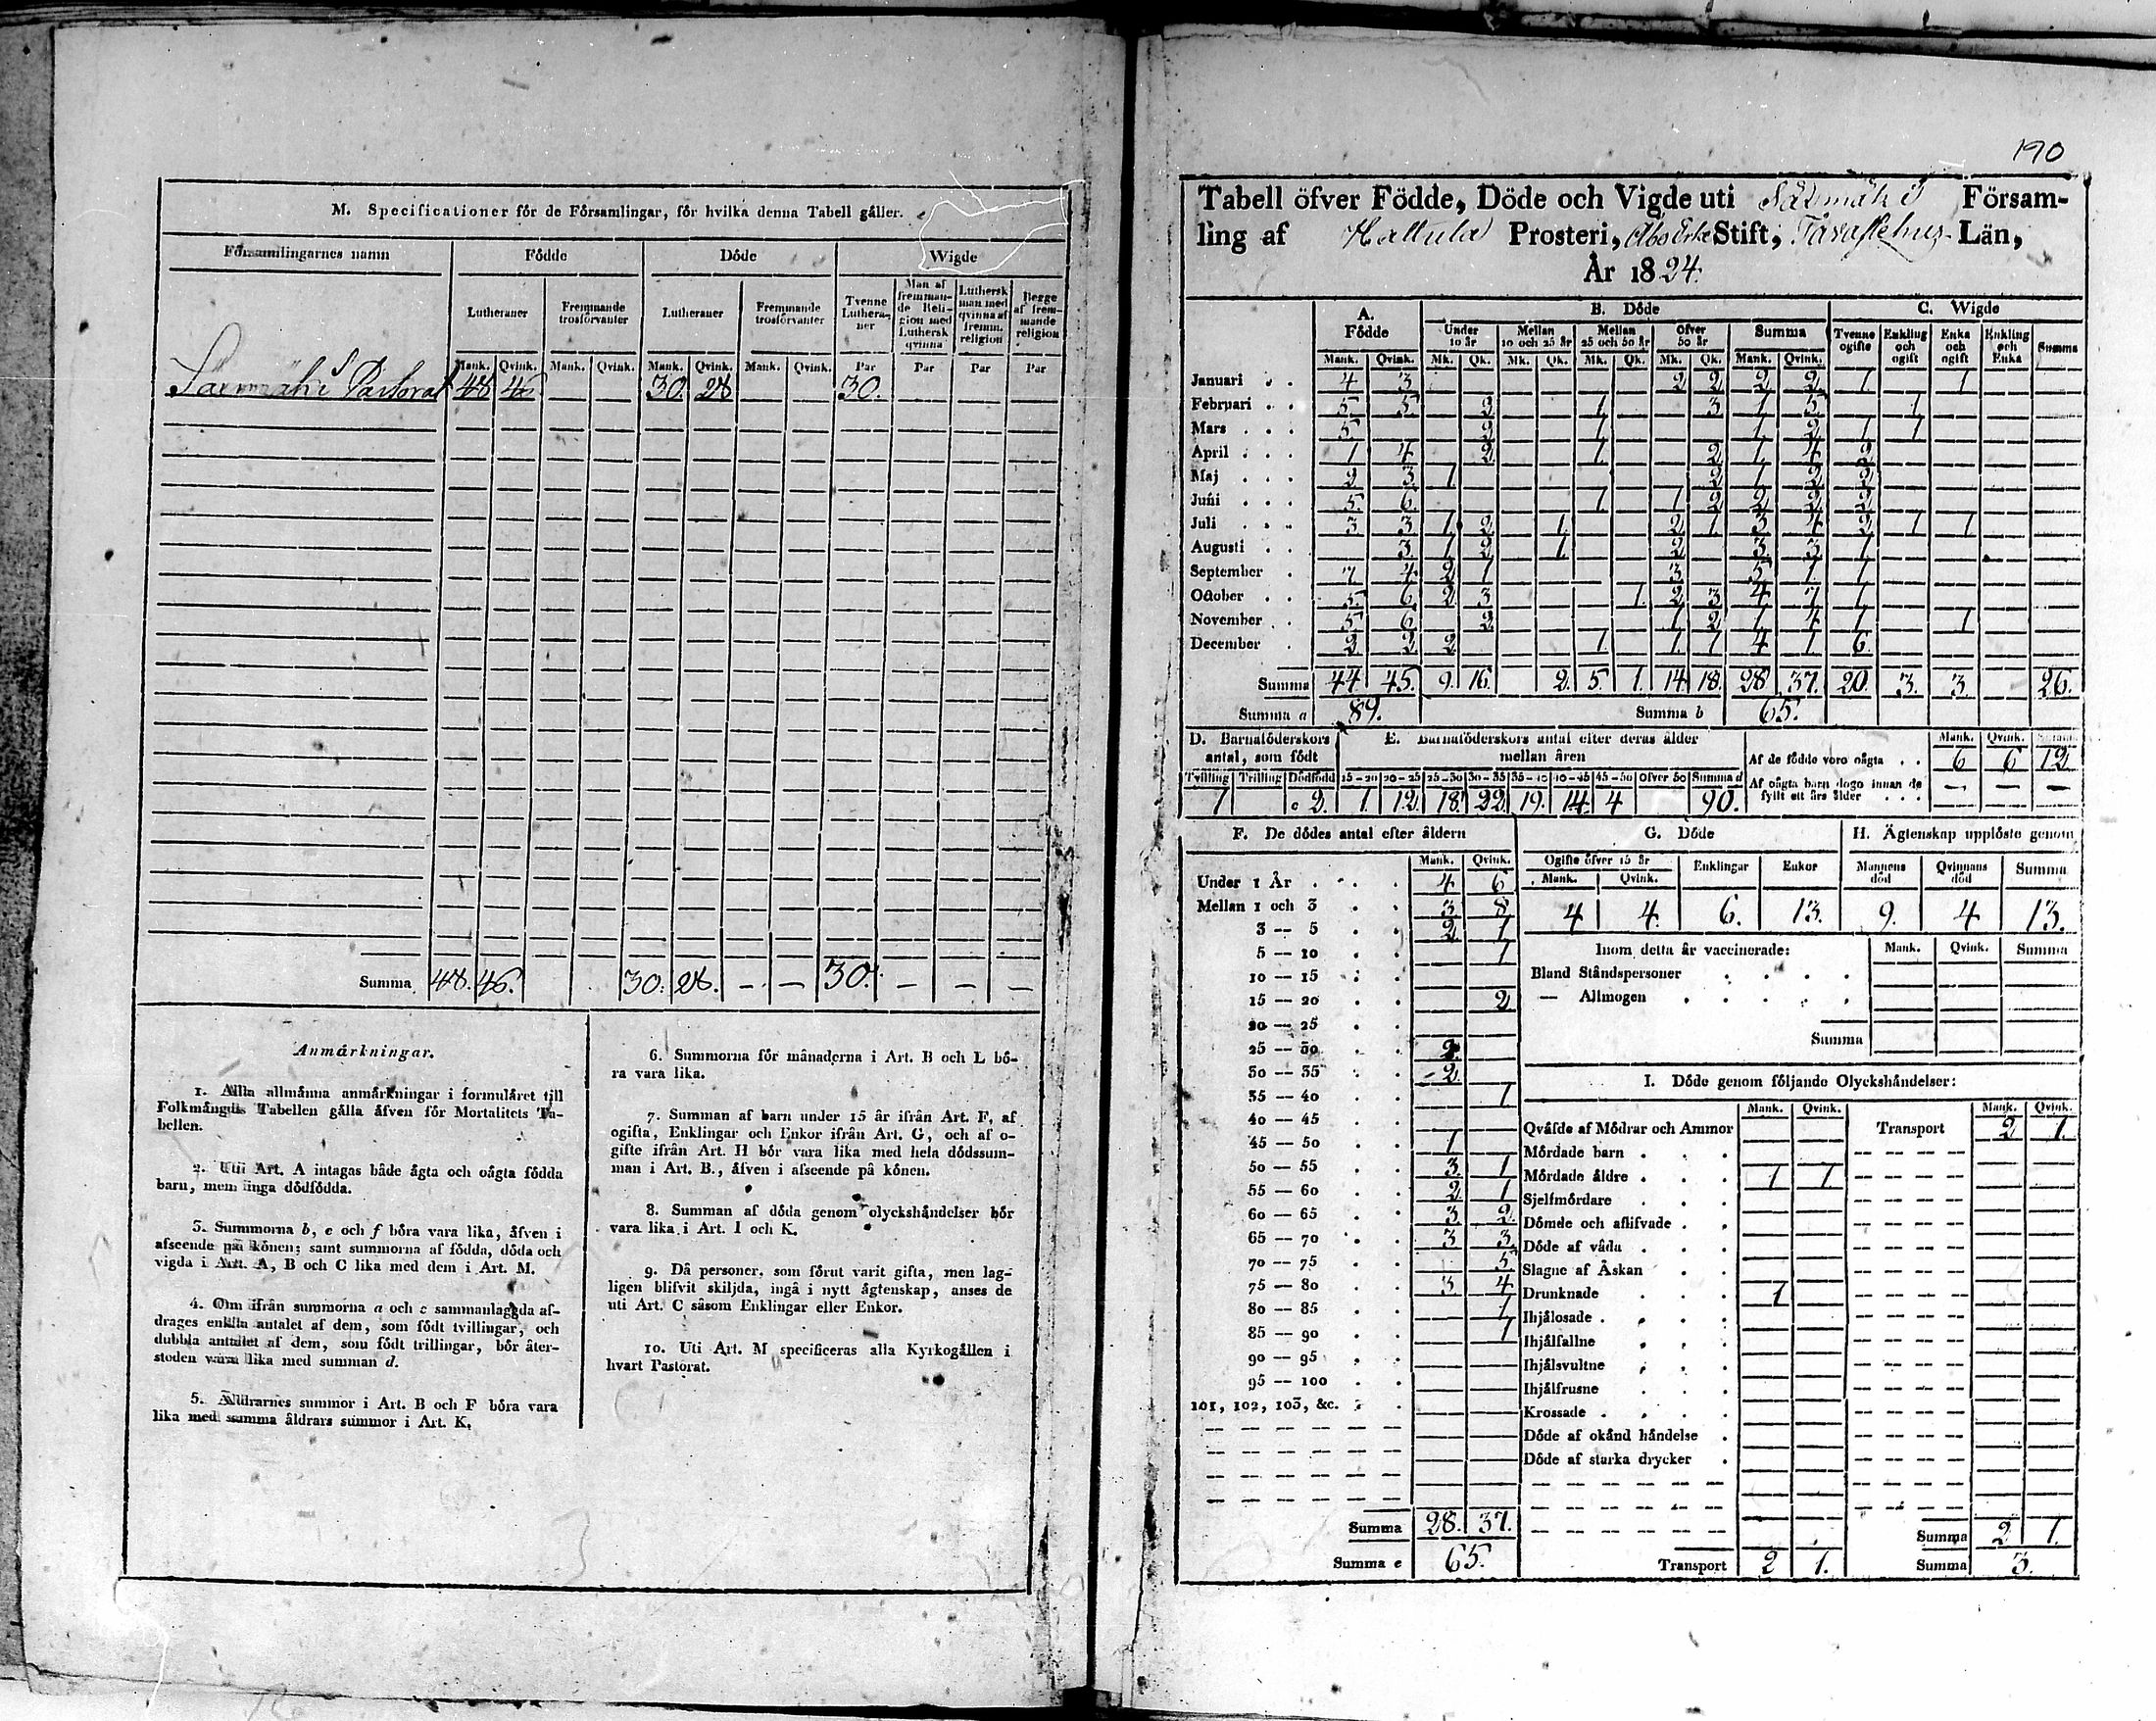 M. Specificationer för de Församlingar, för hvilka denna Tabell gäller.
Församlingarnes namn Födde Döde Wigde
Lutheraner Fremmande trosförvanter Lutheraner Fremmande trosförvanter Tvenne Lutheraner Man af fremmande Religion med Luthersk qvinna Luthersk man med qvinna af fremm. religion Begge af fremmande religion
Mank. Qvink. Mank. Qvink. Mank. Qvink. Mank. Qvink. Par Par Par Par
Säxmäki Pastorat 48 46 30. 28 30.
Summa 48. 46. 30. 28. — — 30. — — —
Anmärkningar.
1. Alla allmänna anmärkningar i formuläret till
Folkmängds Tabellen gälla äfven för Mortalitets Ta-
bellen.
2. Uti Art. A intagas både ägta och oägta födda
barn, men inga dödfödda.
3. Summorna b, e och f böra vara lika, äfven i
afseende på könen; samt summorna af födda, döda och
vigda i Art. A, B och C lika med dem i Art. M.
4. Om ifrån summorna a och c sammanlaggda af-
drages enkla antalet af dem, som födt tvillingar, och
dubbla antalet af dem, som födt trillingar, bör åter-
stoden vara lika med summan d.
5. Åldrarnes summor i Art. B och F böra vara
lika med samma åldrars summor i Art. K.
6. Summorna för månaderna i Art. B och L bö-
ra vara lika.
7. Summan af barn under 15 år ifrån Art. F, af
ogifta, Enklingar och Enkor ifrån Art. G, och af o-
gifte ifrån Art. H bör vara lika med hela dödssum-
man i Art. B., äfven i afseende på könen.
8. Summan af döda genom olyckshändelser bör
vara lika i Art. I och K.
9. Då personer, som förut varit gifta, men lag-
ligen blifvit skiljda, ingå i nytt ägtenskap, anses de
uti Art. C såsom Enklingar eller Enkor.
10. Uti Art. M specificeras alla Kyrkogällen i
hvart Pastorat.
190
Tabell öfver Födde, Döde och Vigde uti Säxmäki Försam-
ling af Hattula Prosteri, Åbo Erke Stift, Tavastehus Län,
År 1824.
A. Födde B. Döde C. Wigde
Under 10 år Mellan 10 och 25 år Mellan 25 och 50 år Öfver 50 år Summa Tvenne ogifte Enkling och ogift Enka och ogift Enkling och Enka Summa
Mank. Qvink. Mk. Qk. Mk. Qk. Mk. Qk. Mk. Qk. Mank. Qvink.
Januari 4 3 2 2 2 2 1 1
Februari 5 5 2 1 3 1 5 1
Mars 5 2 1 1 2 1 1
April 1 4 2 1 2 1 4 2
Maj 2 3 1 2 1 2 2
Juni 5 6 1 1 2 2 2 2
Juli 3 3 1 2 1 2 1 3 4 2 1 1
Augusti 3 1 2 1 2 3 3 1
September 7 4 2 1 3 5 1 1
October 5 6 2 3 1 2 3 4 7 1
November 5 6 2 1 2 1 4 1 1
December 2 2 2 1 1 1 4 1 6
Summa 44 45. 9. 16. 2. 5. 1. 14. 18. 28 37. 20. 3. 3. 26.
Summa a 89. Summa b 65.
D. Barnaföderskors antal, som födt
E. Barnaföderskors antal efter deras ålder mellan åren
Tvilling Trilling Dödfödd 15-20 20-25 25-30 30-35 35-40 40-45 45-50 Öfver 50 Summa d
1 2. 1. 12 18. 22 19. 14 4 90.
Mank. Qvink. Summa
Af de födde voro oägta 6 6 12
Af oägta barn dogo innan de fyllt ett års ålder — — —
F. De dödes antal efter åldern
Mank. Qvink.
Under 1 År 4 6
Mellan 1 och 3 3 8
3 — 5 2 1
5 — 10 1
10 — 15
15 — 20 2
20 — 25
25 — 30 2
30 — 35 2
35 — 40 1
40 — 45
45 — 50 1
50 — 55 3 1
55 — 60 2 1
60 — 65 3 2
65 — 70 3 3
70 — 75 5
75 — 80 3 4
80 — 85 1
85 — 90 1
90 — 95
95 — 100
101, 102, 103, &c.
Summa 28. 37.
Summa e 65.
G. Döde
Ogifte öfver 15 år Enklingar Enkor
Mank. Qvink.
4 4. 6. 13.
H. Ägtenskap upplöste genom
Mannens död Qvinnans död Summa
9. 4 13.
Inom detta år vaccinerade: Mank. Qvink. Summa
Bland Ståndspersoner
— Allmogen
Summa
I. Döde genom följande Olyckshändelser:
Mank. Qvink. Mank. Qvink.
Qväfde af Mödrar och Ammor Transport 2 1.
Mördade barn
Mördade äldre 1 1
Sjelfmördare
Dömde och aflifvade
Döde af våda
Slagne af Åskan
Drunknade 1
Ihjälosade
Ihjälfallne
Ihjälsvultne
Ihjälfrusne
Krossade
Döde af okänd händelse
Döde af starka drycker
Summa 2 1.
Transport 2 1. Summa 3.